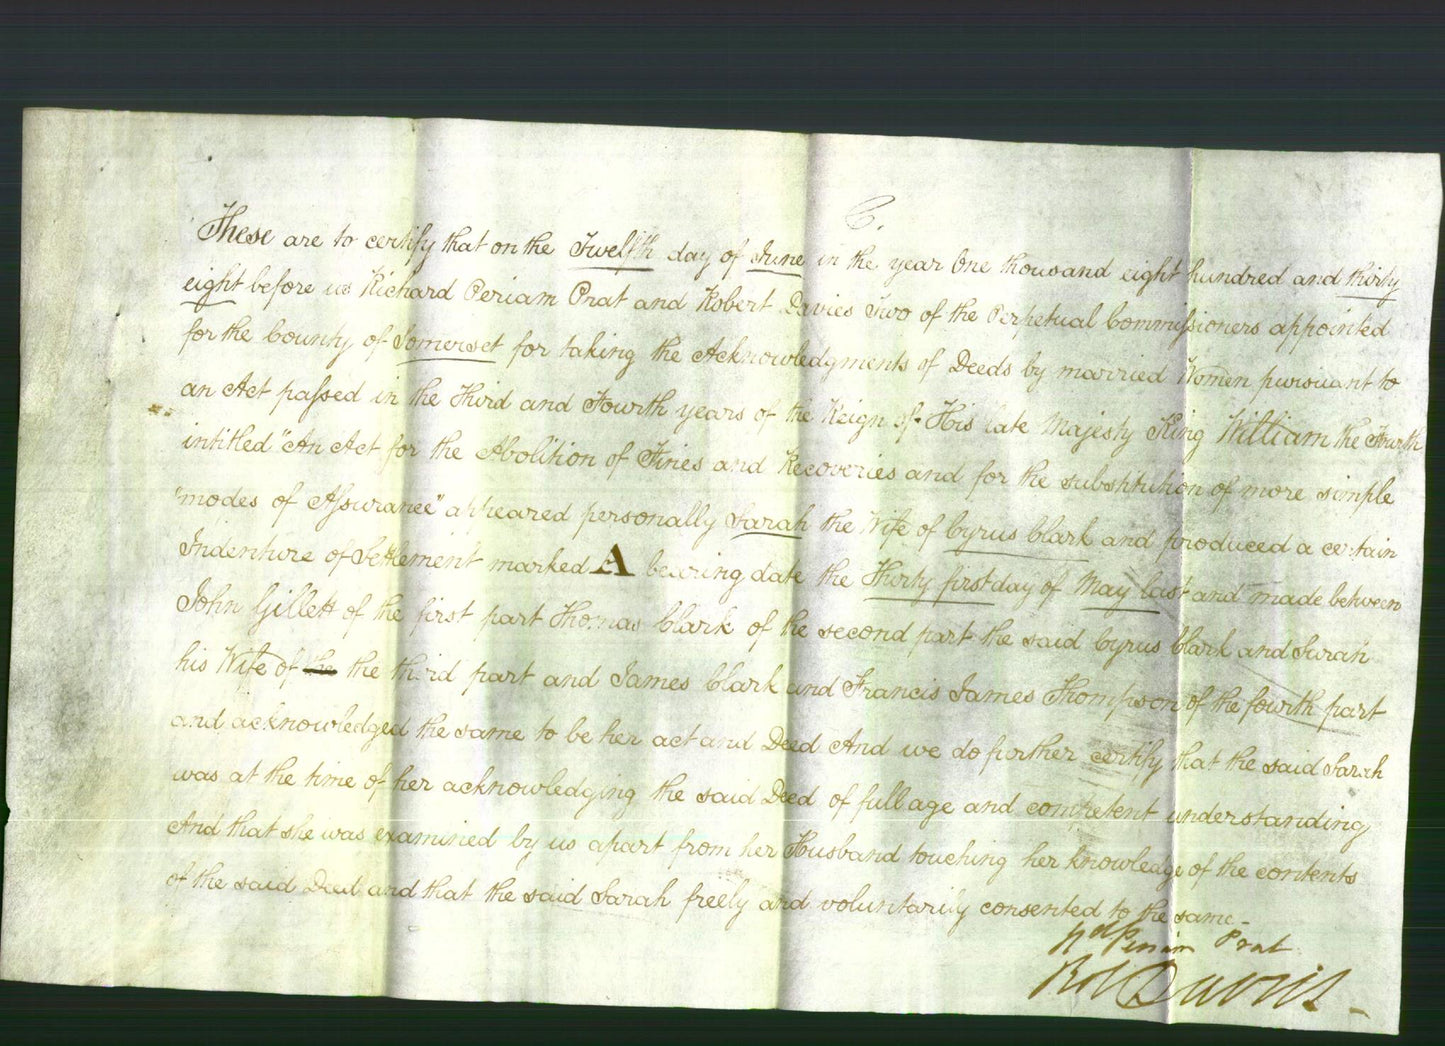 C.
These are to certify that on the Twelfth day of June in the year One thousand eight hundred and thirty
eight before us Richard Periam Prat and Robert Davies Two of the Perpetual Commissioners appointed
for the County of Somerset for taking the Acknowledgments of Deeds by married Women pursuant to
an Act passed in the Third and Fourth years of the Reign of His late Majesty King William the Fourth
intitled "An Act for the Abolition of Fines and Recoveries and for the substitution of more simple
"modes of Assurance" appeared personally Sarah the Wife of Cyrus Clark and produced a certain
Indenture of Settlement marked A bearing date the Thirty first day of May last and made between
John Gillett of the first part Thomas Clark of the second part the said Cyrus Clark and Sarah
his Wife of the the third part and James Clark and Francis James Thompson of the fourth part
and acknowledged the same to be her act and Deed And we do further certify that the said Sarah
was at the time of her acknowledging the said Deed of full age and competent understanding
And that she was examined by us apart from her Husband touching her knowledge of the contents
of the said Deed and that the said Sarah freely and voluntarily consented to the same -
Rd Periam Prat
Rob Davies